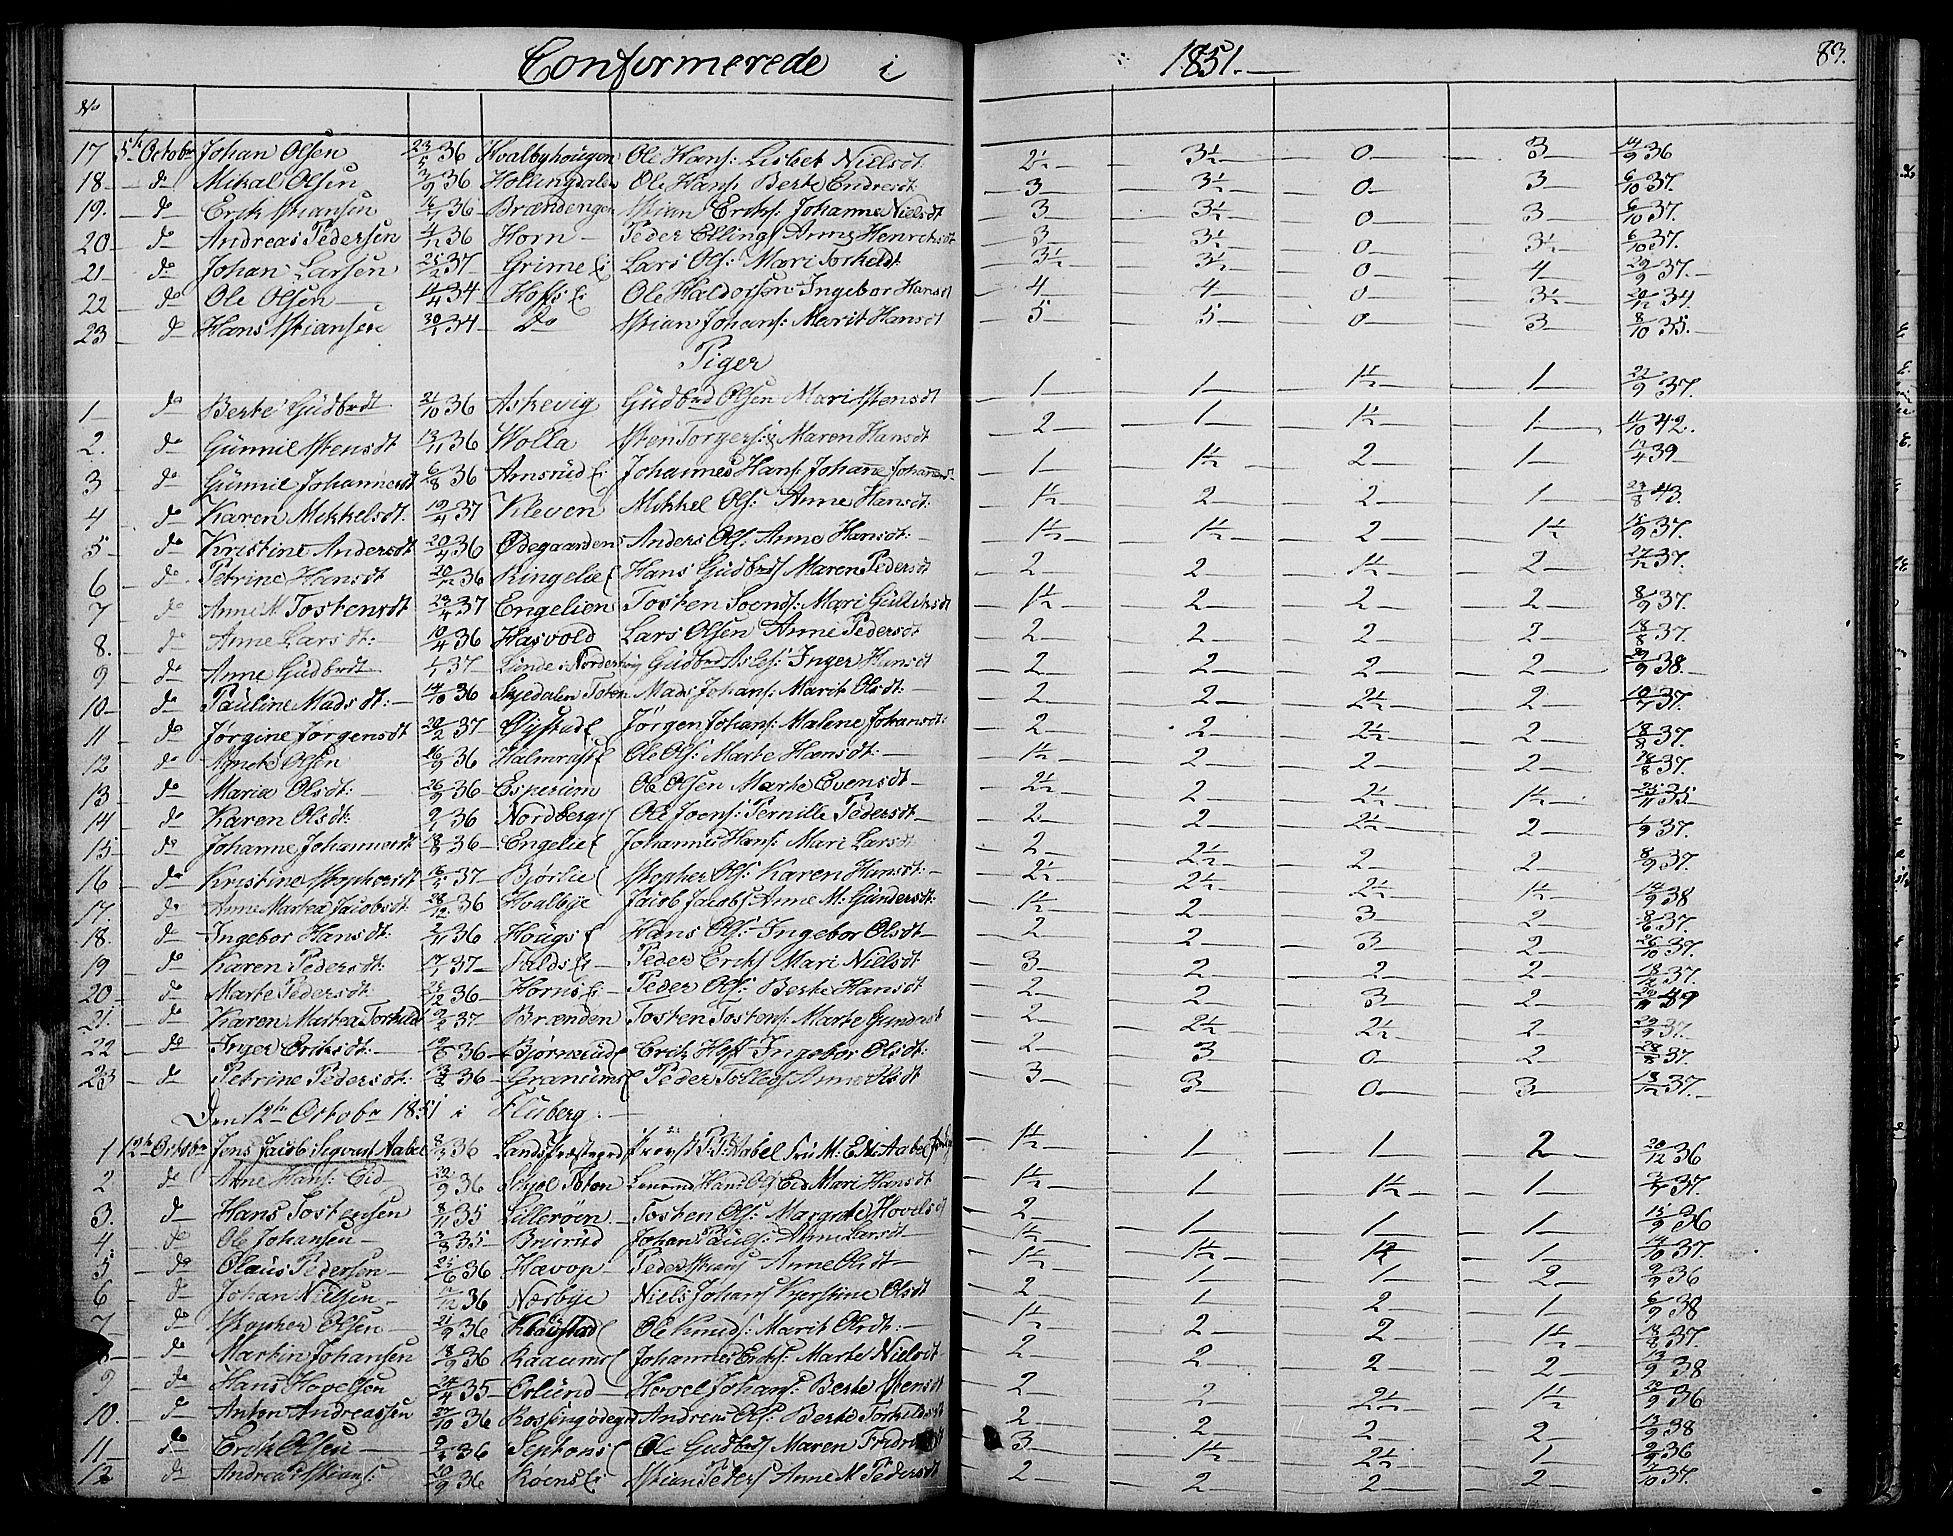 Confirmerede i 1851. 83.
No
17 5te Octobr Johan Olsen 23/5 36 Hvalbyhougen Ole Hans: Lisbet Nielsdt 2½ 3½ 0 3 14/9 36
18 do Mikal Olsen 36 Hollingdalen Ole Hans: Berte Endresdt 3 3½ 0 3 6/10 37.
19. do Erik Stiansen 36 Brændengen Stian Eriks: Johanne Nielsdt 3 3½ 0 3 6/10 37.
20 do Andreas Pedersen 36 Horn Peder Ellings Anne Henriksdt 3 3½ 0 3½ 6/10 37.
21 do Johan Larsen 25/2 37 Grime E: Lars Ols: Mari Torkeldt: 3½ 3½ 0 4 29/9 37.
22 do Ole Olsen 11/4 34 Hoffs E: Ole Haldorsen Ingebor Hansdt 4 4 0 3½ 34
23 do Hans Stiansen 30/1 34 Do Stian Johans: Marit Hansdt 5 5 0 3 8/10 35.
Piger
1 do Berte Gudbrdt 21/10 36 Askevig Gudbrd Olsen Mari Stensdt 1 1 1½ 1 22/9 37.
2. do Gunnil Stensdt 13/11 36 Wolla Sten Torgers: Maren Hansdt 2 1 1½ 1 11/10 42.
3 do Gunnil Johannesdt 6/8 36 Amsrud E: Johannes Hans: Johanne Johannesdt 1 1½ 2 1 13/4 39
4 do Karen Mikkelsdt. 19/4 37 Kleven Mikkel Ols: Anne Hansdt: 1½ 2 2 1 43
5 do Kristine Andersdt 20/4 36 Ødegaarden Anders Ols: Anne Hansdt: 1½ 1½ 2 1½ 37.
6 do Petrine Hansdt 20/12 36 Ringelie E Hans Gudbrds Maren Pedersdt 2 2 1½ 2 37.
7 do Anne M. Tostensdt 23/4 37 Engelien Tosten Soends: Mari Gulliksdt 1½ 2 2 2 8/9 37.
8. do Anne Larsdt: 19/4 36 Hasvold Lars Olsen Anne Pedersdt 2 2 2 2 18/8 37.
9 do Anne Gudbrdt 37 Lunde i Norderhov Gudbrd Asles: Inger Hansdt 2 2 2 2 29/9 38.
10 do Pauline Madsdt: 14/10 36 Skjedalen Toten Mads Johans: Marit Olsdt: 2 2 2½ 2 37.
11 do Jørgine Jørgensdt 20/2 37 Øistad E Jørgen Johans: Malene Johansdt: 2 2 2½ 2 18/8 37.
12 do Agnete Olsen 16/9 36 Halmrast E Ole Ols: Marte Hansdt: 1½ 2 2 2 18/8 37.
13 do Maria Olsdt: 26/9 36 Esperum Ole Olsen Marte Evensdt 2½ 2 2½ 1½ 35
14 do Karen Olsdt: 36 Nordbergs E Ole Joens: Pernille Pedersdt 2 2 2½ 2 1/9 37.
15 do Johanne Johannesdt 18/9 36 Engelie E Johannes Hans: Mari Larsdt 2 2½ 2 2 8/9 37.
16 do Kristine Stophersdt 37 Bjørlie E Stopher Ols: Karen Hansdt: 2½ 2½ 2½ 1½ 38
17. do Anne Martea Jacobsdt 28/12 36 Hvalbye Jacob Jacobs: Anne M: Gundersdt: 1½ 2 3 2 8/6 37.
18. do Ingebor Hansdt: 2/11 36 Hougs E Hans Ols: Ingebor Olsdt 2 2 3 2 26/10 37.
19 do Karen Pedersdt: 17/1 37 Falds E: Peder Eriks Mari Nielsdt 3 2 2 2 37.
20 do Marte Pedersdt 36 Horns E: Peder Ols: Berte Hansdt 2 2 3 2 49
21. do Karen Martea Torkildt 37 Brænden Tosten Tostens: Marte Gundersdt 2 2½ 2½ 2 29/9 37.
22 do Inger Eriksdt: 36 Bjørnerud E Erik Hoff Ingebor Olsdt: 2 3 0 2 37.
23 do Petrine Pedersdt: 36 Granums E Peder Tollefs: Anne Olsdt 3 3 0 3 37.
Den 12te Octobr 1851 i Fluberg.
1 12te Octobr Jens Jacob Sigvart Aabel 36 Landsprestegrd Provst P. P. Aabel Fru M: E. M: Aabel 1½ 1 1 2 20/12 36
2 do Arne Hans: Eid 36 Skjel Toten Hans Ols: Eid Mari Hansdt 1½ 1 1½ 1 37.
3. do Hans Tostensen 8/11 35 Lillerøen Tosten Ols: Margrete Hovelsdt 2 1 1 1 15/9 36
4 do Ole Johansen 3/8 35 Bruerud Johan Pauls: Anne Larsdt 1½ 1½ 1½ 1 14/10 37.
5 do Olaus Pedersen 25/6 36 Havop Peder Stians Anne Olsdt 1½ 1 1 2 36
6 do Johan Nielsen 36 Nørbye Niels Johans Kjerstine Olsdt 2 1 2 1 6/9 38
7 do Stopher Olsen 21/9 36 Klaustad E Ole Knuds: Marit Olsdt: 1½ 2 2 1½ 37.
8 do Martin Johansen 18/9 36 Kaaums E Johannes Eriks: Marte Nielsdt 2 2 2 2 13/9 38
9 do Hans Hovelsen 24/4 35 Erlund Hovel Johans: Berte Stensdt 2 2 2½ 1½ 36
10. do Anton Andreassen 27/10 36 Rossingødegrd Andreas Ols: Berte Torkildsdt 2 2 2 2 13/9 38
11 do Erik Olsen 36 Septons E Ole Gudbrds Maren Fridri 3 1½ 2½ 1 36
12 do Andreas Stians: 10/9 36 Røens E: Stian Peders Anne M. Pedersdt 2 2 2 2 37.